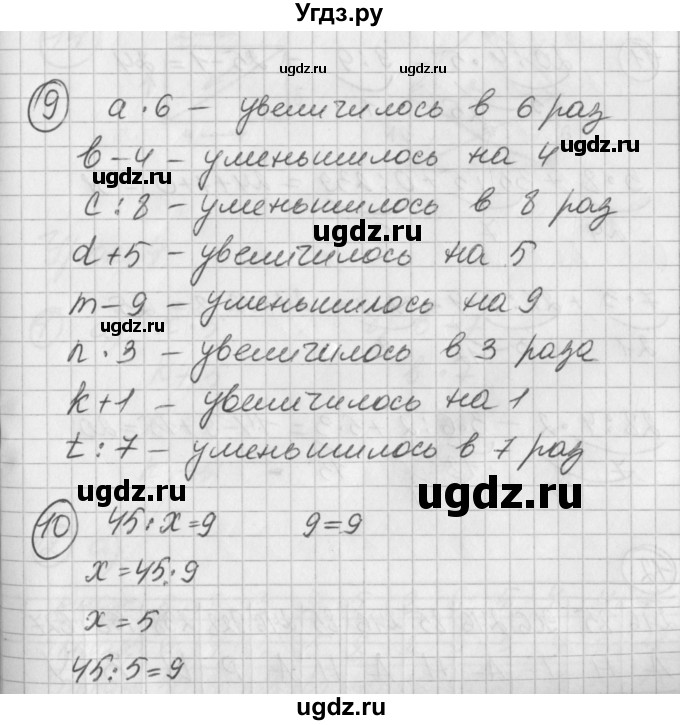 Угдз.ру
ugdz.ru ugdz.ru
9 a · 6 – увеличилось в 6 раз
ugdz.ru
b – 4 – уменьшилось на 4
ugdz.ru
c : 8 – уменьшилось в 8 раз
ugdz.ru
d + 5 – увеличилось на 5
m – 9 – уменьшилось на 9
ugdz.ru
n · 3 – увеличилось в 3 раза
k + 1 – увеличилось на 1
ugdz.ru
t : 7 – уменьшилось в 7 раз
ugdz.ru ugdz.ru
10 45 : x = 9 9 = 9
x = 45 : 9
ugdz.ru
x = 5
ugdz.ru
45 : 5 = 9
ugdz.ru
ugdz.ru